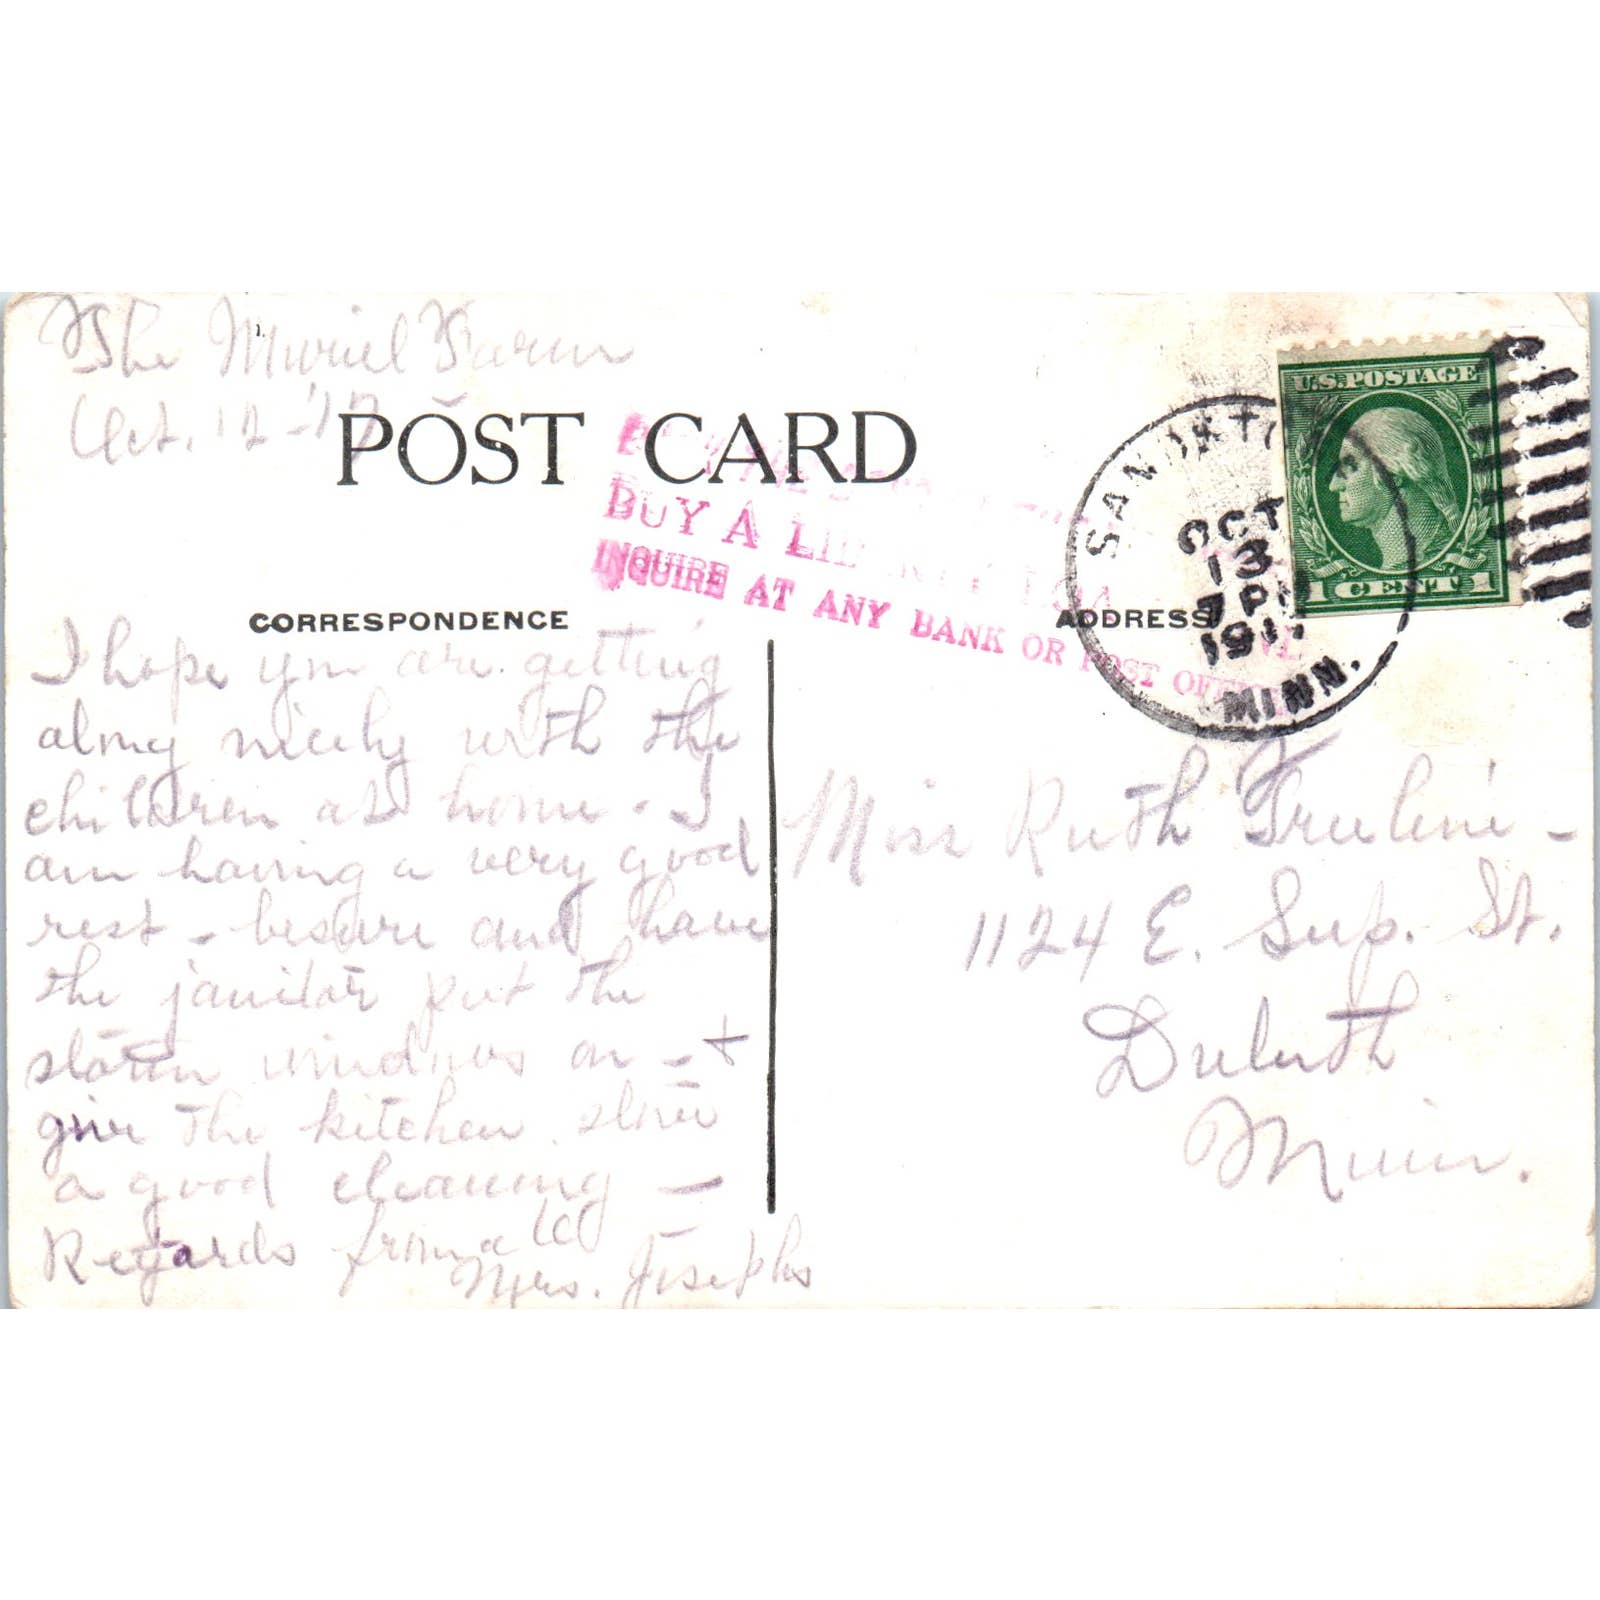 The Muriel Farm
Oct. 12 - '17
POST CARD
BUY A LIBERTY LOAN
INQUIRE AT ANY BANK OR POST OFFICE
CORRESPONDENCE
ADDRESS
U.S. POSTAGE
1 CENT 1
OCT
13
7 PM
191
MINN.
I hope you are getting
along nicely with the
children at home - I
am having a very good
rest - besure and have
the janitor put the
storm windows on - +
give the kitchen stove
a good cleaning -
Regards from all
Mrs. Josephs
Miss Ruth
1124 E. Sup. St.
Duluth
Minn.